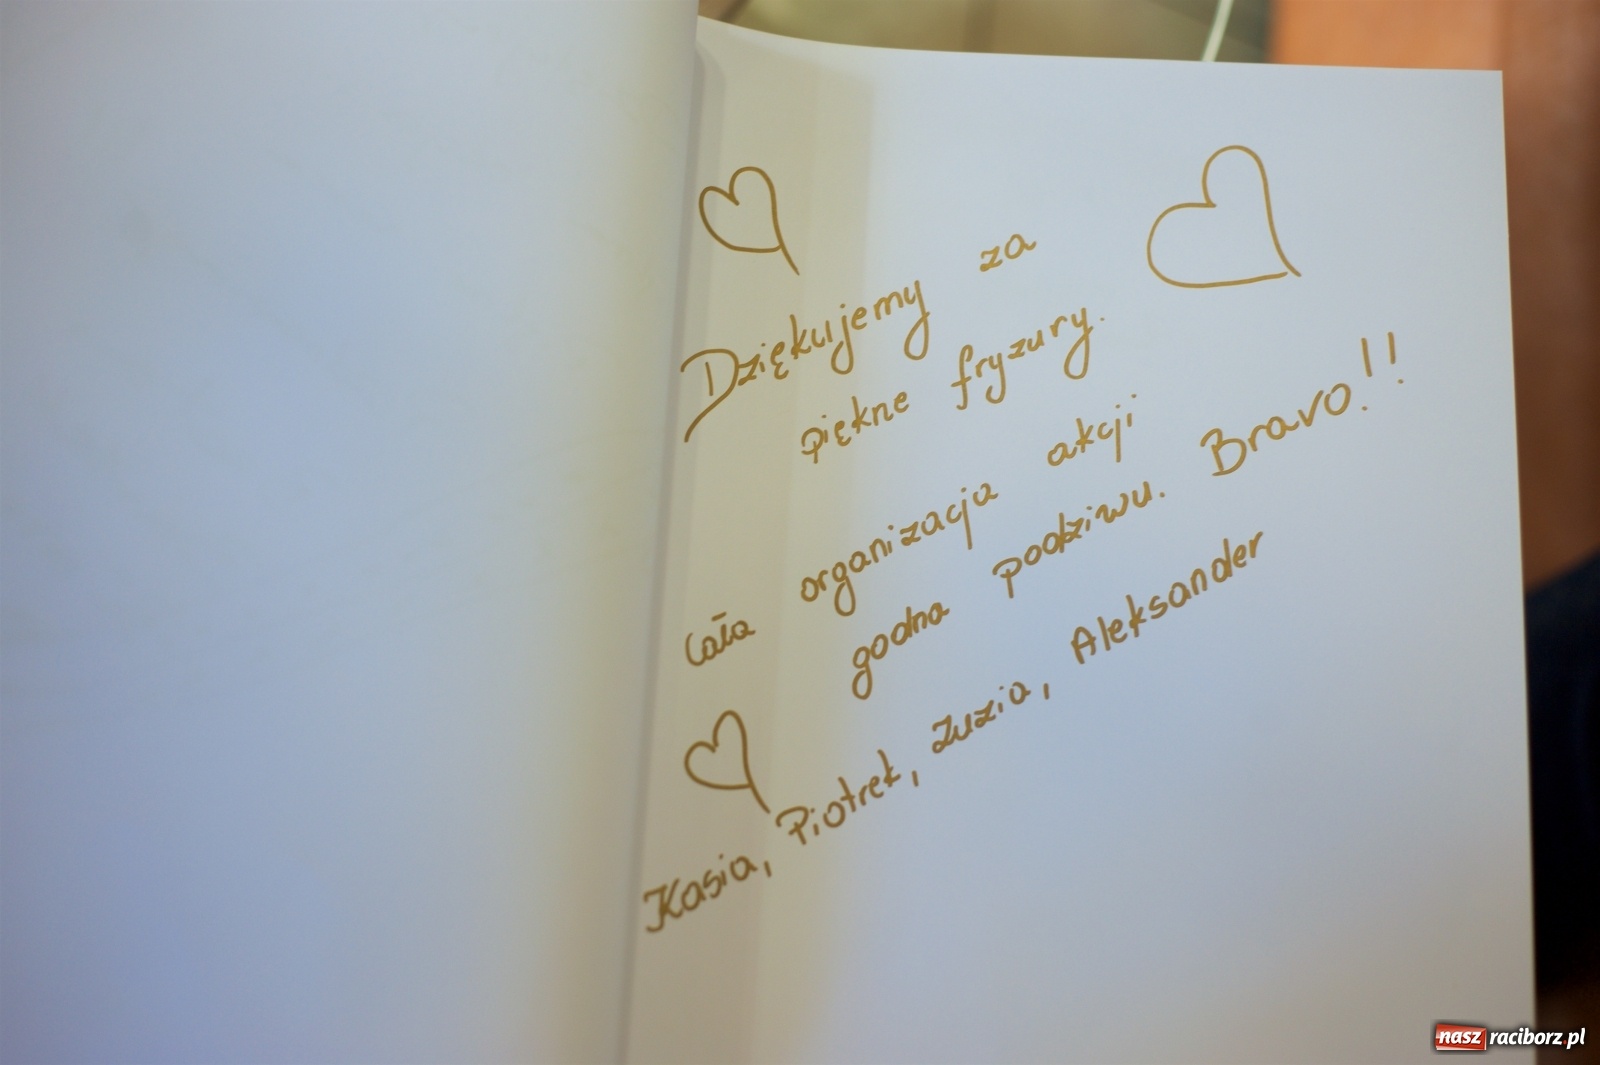 Dziękujemy za
piękne fryzury.
Cała organizacja akcji
godna podziwu. Bravo!!
Kasia, Piotrek, Zuzia, Aleksander
nasz raciborz.pl